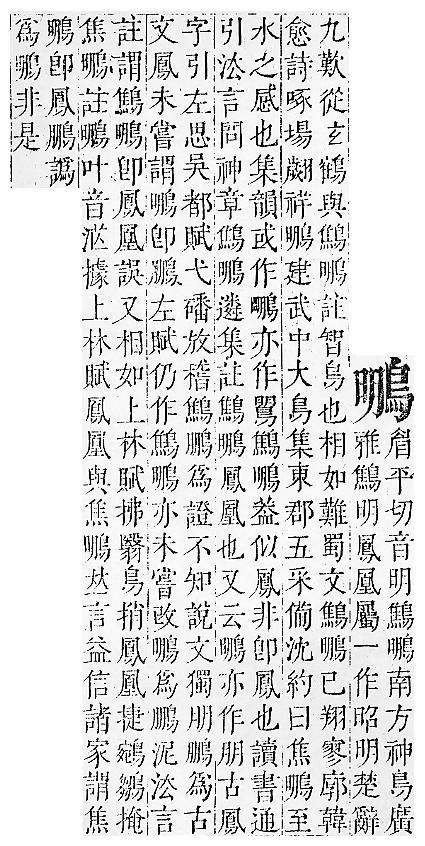 䳟
眉平切音明鷦䳟南方神鳥廣
雅鷦明鳳凰屬一作昭明楚辭
九歎從玄鶴與鷦䳟註智鳥也相如難蜀文鷦䳟已翔寥廓韓
愈詩啄場翽祥䳟建武中大鳥集東郡五采備沈約曰焦䳟至
水之感也集韻或作䳟亦作鷦䳟益似鳳非卽鳳也讀書通
引法言問神章鷦䳟遴集註鷦䳟鳳凰也又云䳟亦作朋古鳳
字引左思吳都賦弋磻放稽鷦鵬爲證不知說文獨朋鵬爲古
文鳳未嘗謂䳟卽鵬左賦仍作鷦䳟亦未嘗改䳟爲鵬泥法言
註謂鷦䳟卽鳳凰誤又相如上林賦拂翳鳥捎鳳凰捷鵷鶵掩
焦䳟註䳟叶音據上林賦鳳凰與焦䳟𠀤言益信諸家謂焦
䳟卽鳳鵬譌
爲䳟非是